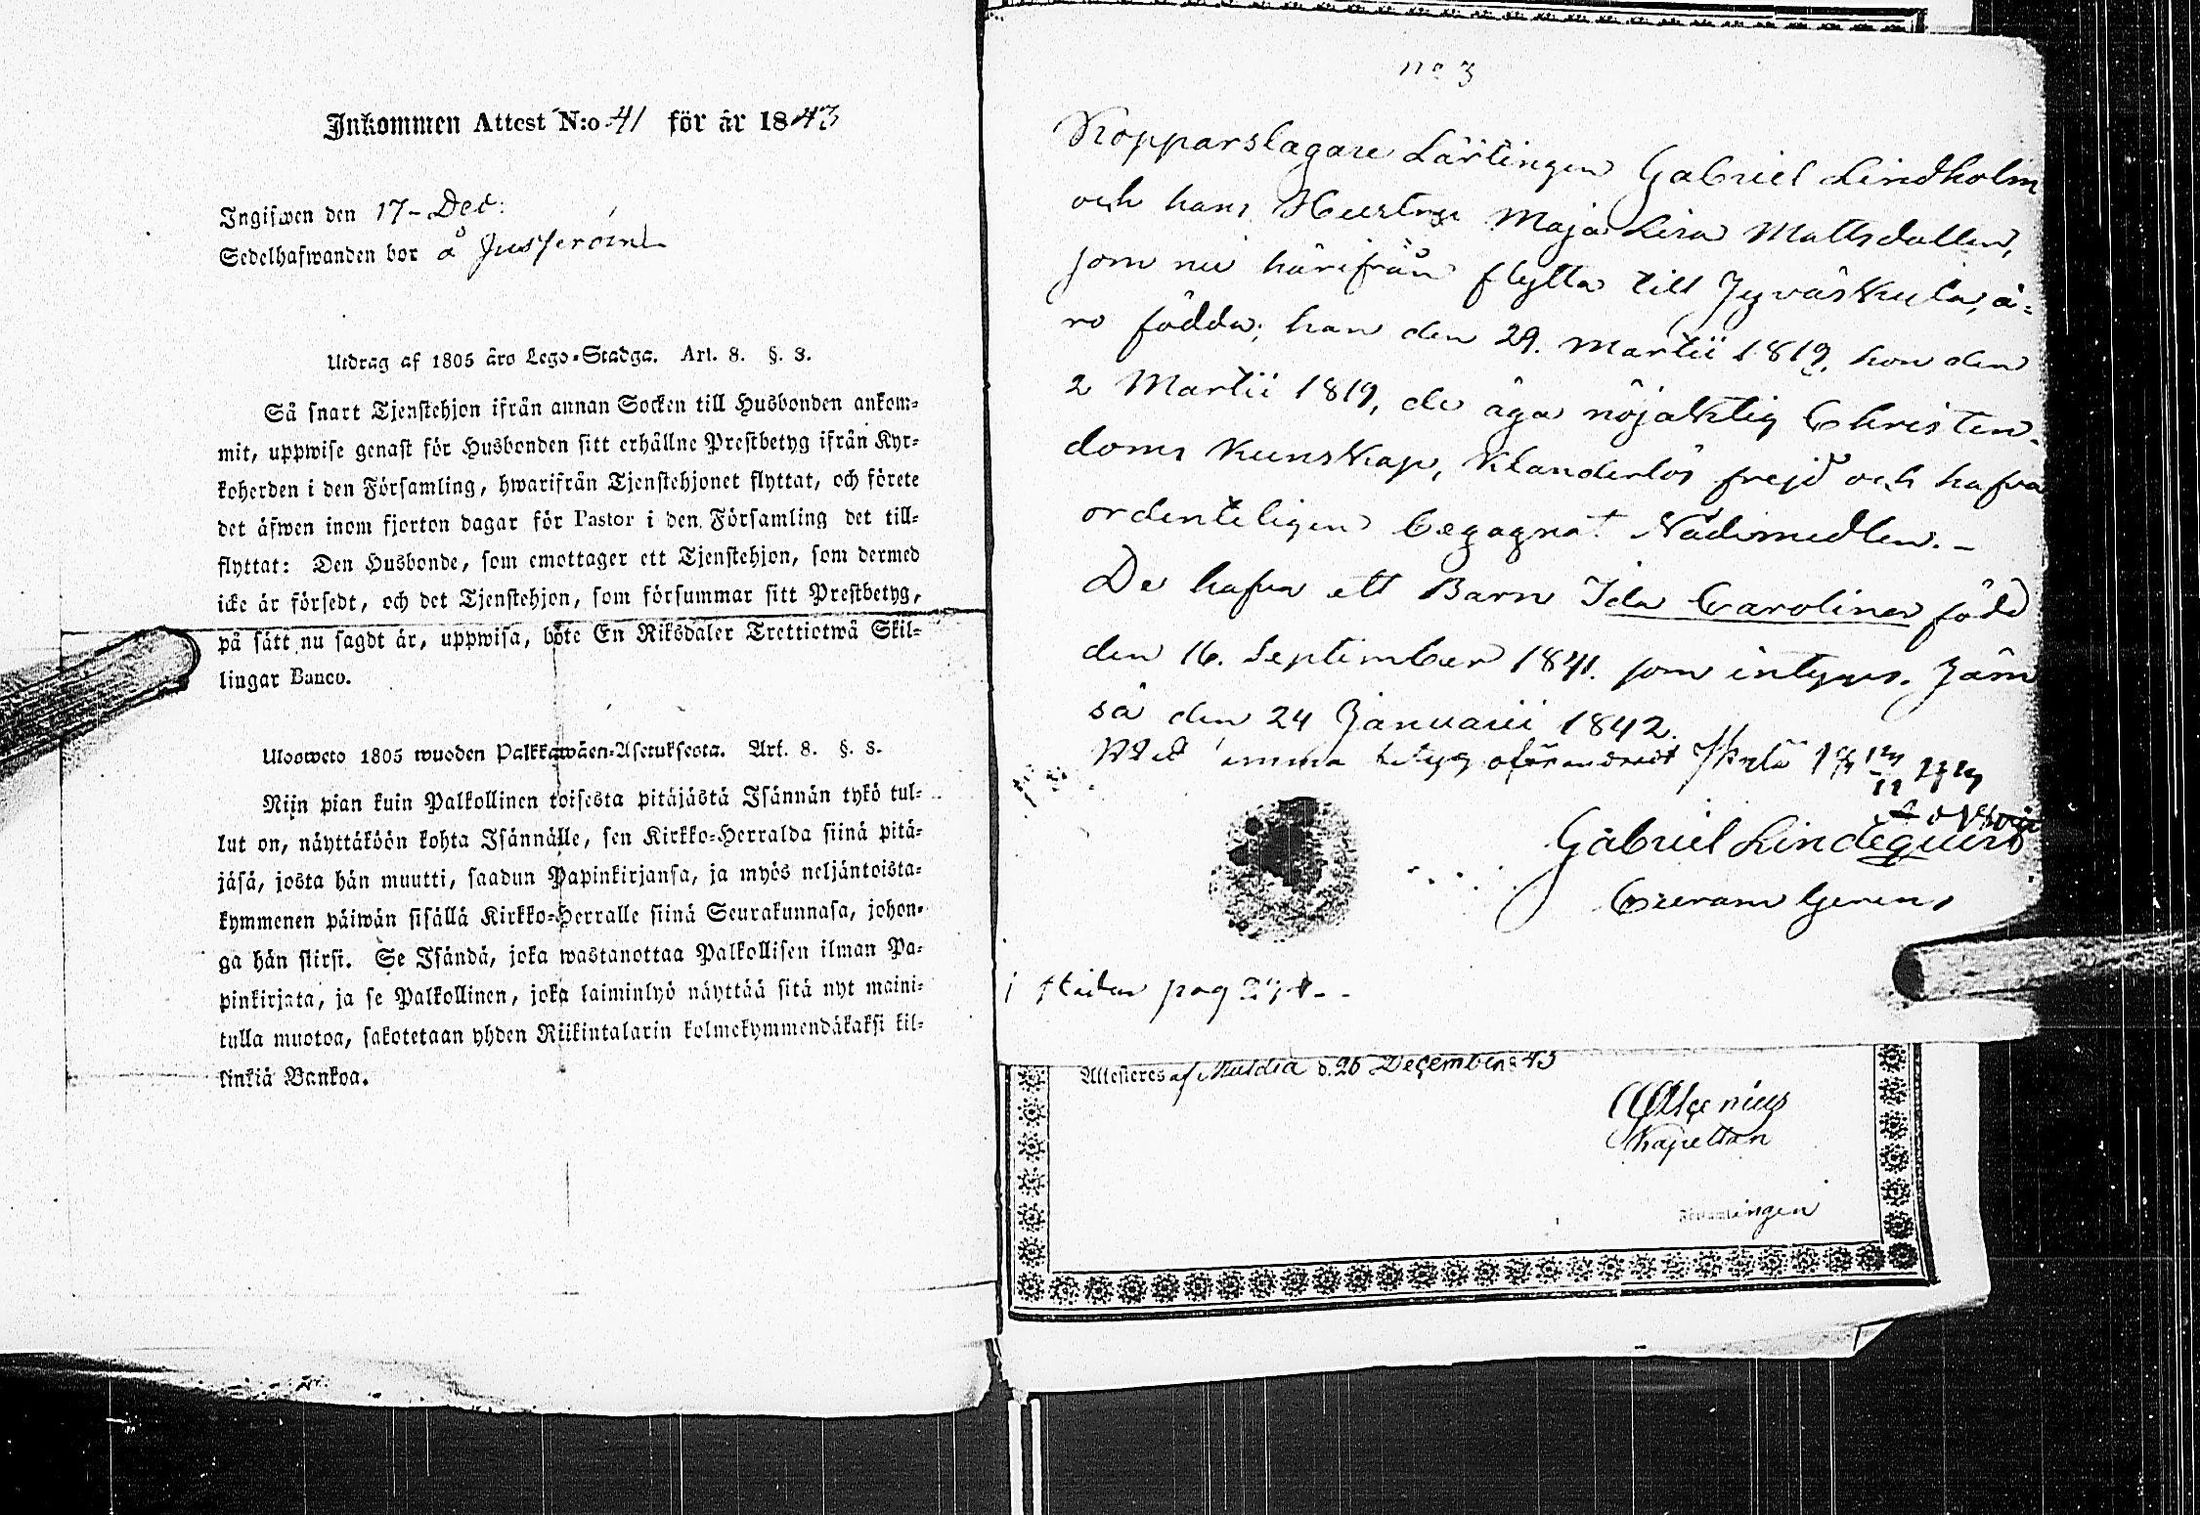 Inkommen Attest N:o 41 för år 1843
Ingifwen den 17 - Dec:
Sedelhafwanden bor å
Utdrag af 1805 års Lego-Stadga. Art. 8. §. 8.
Så snart Tjenstehjon ifrån annan Socken till Husbonden ankom-
mit, uppwise genast för Husbonden sitt erhållne Prestbetyg ifrån Kyr-
koherden i den Församling, hwarifrån Tjenstehjonet flyttat, och förete
det äfwen inom fjorton dagar för Pastor i den Församling det till-
flyttat: Den Husbonde, som emottager ett Tjenstehjon, som dermed
icke är försedt, och det Tjenstehjon, som försummar sitt Prestbetyg,
på sätt nu sagdt är, uppwisa, böte En Riksdaler Trettiotwå Skil-
lingar Banco.
Ulosweto 1805 wuoden Palkkawäen-Asetuksesta. Art. 8. §. 8.
Niin pian kuin Palkollinen toisesta pitäjästä Isännän tykö tul-
lut on, näyttäköön kohta Isännälle, sen Kirkko-Herralda siinä pitä-
jäsä, josta hän muutti, saadun Papinkirjansa, ja myös neljäntoista-
kymmenen päiwän sisällä Kirkko-Herralle siinä Seurakunnasa, johon-
ga hän siirsi. Se Isändä, joka wastanottaa Palkollisen ilman Pa-
pinkirjata, ja se Palkollinen, joka laiminlyö näyttää sitä nyt maini-
tulla muotoa, sakotetaan yhden Riikintalarin kolmekymmendäkaksi kil-
linkiä Bankoa.
no 3
Kopparslagare Lärlingen Gabriel Lindholm
och hans Hustru Maja Lisa Mattsdotter,
som nu härifrån flytta till Jyväskylä, ä-
ro födda; han den 29. Martii 1819, hon den
2 Martii 1819, de äga nöjaktig Christen-
doms Kunskap, Klanderlös frejd och hafva
ordenteligen begagnat Nådemedlen. -
De hafva ett Barn Ida Carolina född
den 16. September 1841. som intygas. Jäm
sä den 24 Januarii 1842.
betyg oförändradt
Gabriel Lindequist
i Staden pag
Attesteras af Muldia d. 26 December 43
Kapellan
Församlingen